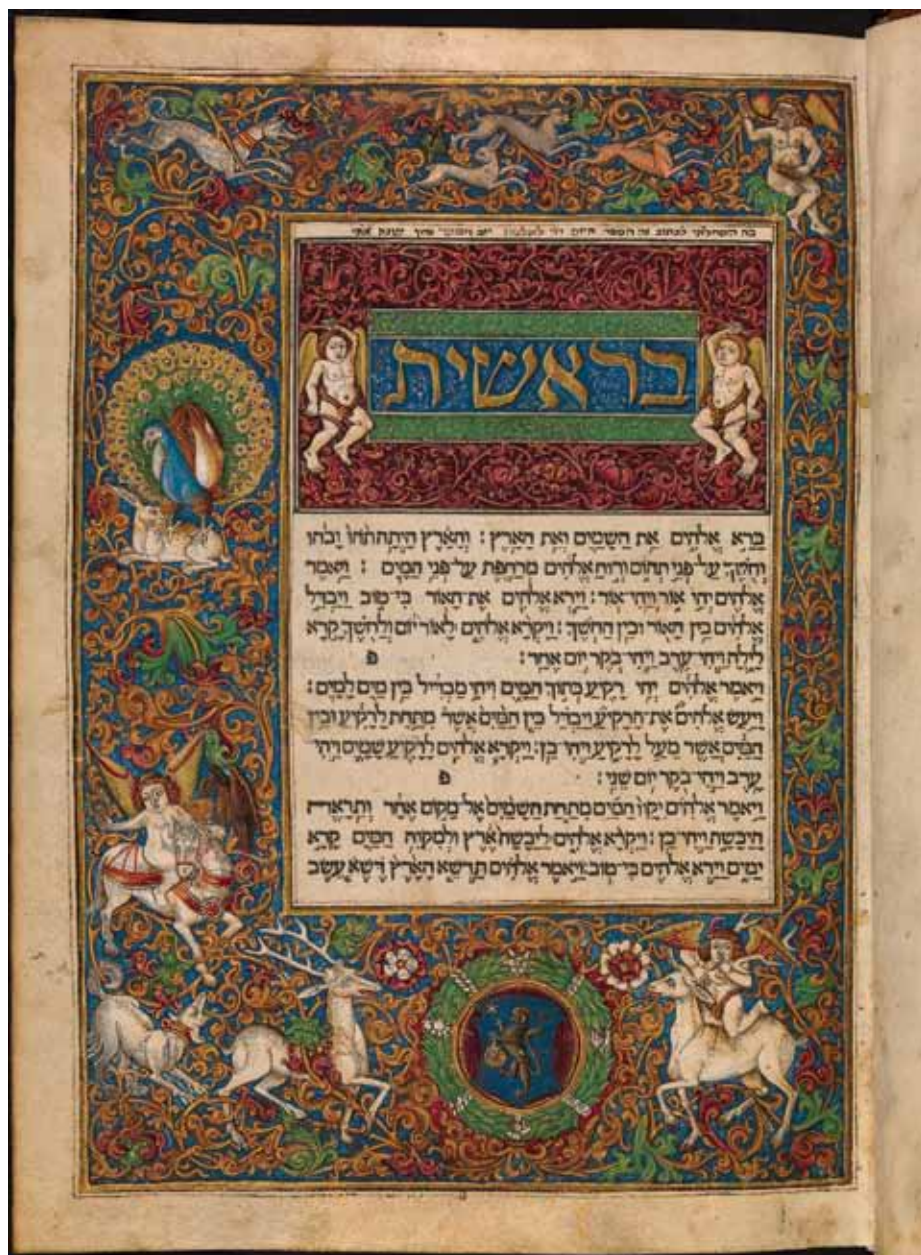 לכתוב זה הספר היום
בראשית
בָּרָא אֱלֹהִים אֵת הַשָּׁמַיִם וְאֵת הָאָרֶץ : וְהָאָרֶץ הָיְתָה תֹהוּ וָבֹהוּ
וְחֹשֶׁךְ עַל־פְּנֵי תְהוֹם וְרוּחַ אֱלֹהִים מְרַחֶפֶת עַל־פְּנֵי הַמָּיִם : וַיֹּאמֶר
אֱלֹהִים יְהִי אוֹר וַיְהִי־אוֹר : וַיַּרְא אֱלֹהִים אֶת־הָאוֹר כִּי־טוֹב וַיַּבְדֵּל
אֱלֹהִים בֵּין הָאוֹר וּבֵין הַחֹשֶׁךְ : וַיִּקְרָא אֱלֹהִים לָאוֹר יוֹם וְלַחֹשֶׁךְ קָרָא
לָיְלָה וַיְהִי־עֶרֶב וַיְהִי־בֹקֶר יוֹם אֶחָד : פ
וַיֹּאמֶר אֱלֹהִים יְהִי רָקִיעַ בְּתוֹךְ הַמָּיִם וִיהִי מַבְדִּיל בֵּין מַיִם לָמָיִם :
וַיַּעַשׂ אֱלֹהִים אֶת־הָרָקִיעַ וַיַּבְדֵּל בֵּין הַמַּיִם אֲשֶׁר מִתַּחַת לָרָקִיעַ וּבֵין
הַמַּיִם אֲשֶׁר מֵעַל לָרָקִיעַ וַיְהִי־כֵן : וַיִּקְרָא אֱלֹהִים לָרָקִיעַ שָׁמָיִם וַיְהִי
עֶרֶב וַיְהִי־בֹקֶר יוֹם שֵׁנִי : פ
וַיֹּאמֶר אֱלֹהִים יִקָּווּ הַמַּיִם מִתַּחַת הַשָּׁמַיִם אֶל־מָקוֹם אֶחָד וְתֵרָאֶה
הַיַּבָּשָׁה וַיְהִי־כֵן : וַיִּקְרָא אֱלֹהִים לַיַּבָּשָׁה אֶרֶץ וּלְמִקְוֵה הַמַּיִם קָרָא
יַמִּים וַיַּרְא אֱלֹהִים כִּי־טוֹב : וַיֹּאמֶר אֱלֹהִים תַּדְשֵׁא הָאָרֶץ דֶּשֶׁא עֵשֶׂב